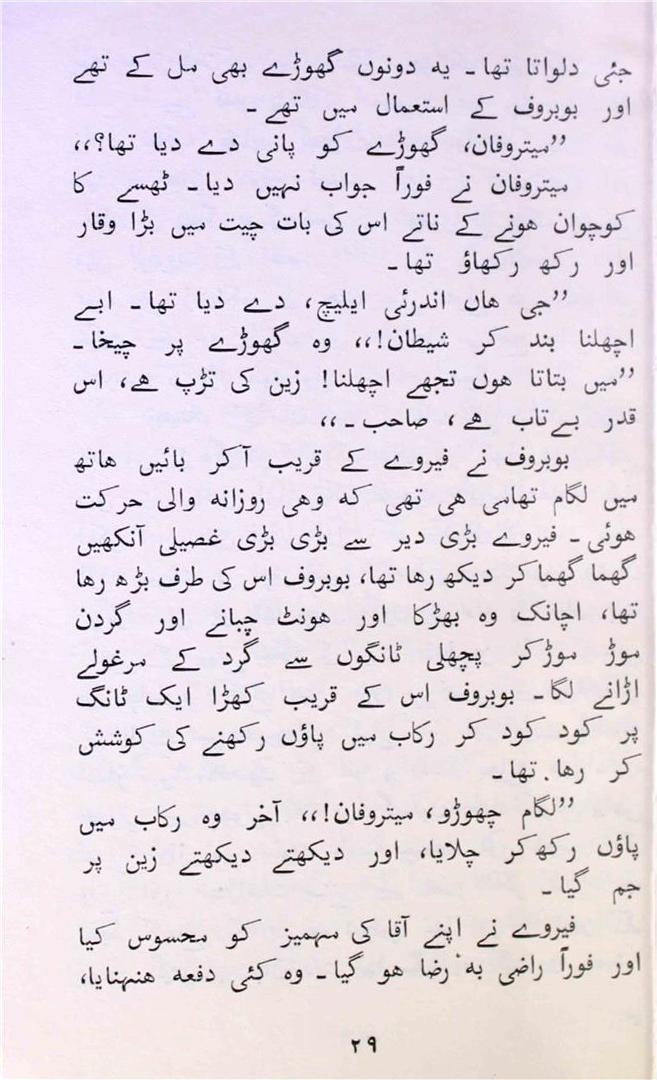 جئی دلواتا تھا۔ یہ دونوں گھوڑے بھی مل کے تھے
اور بوبروف کے استعمال میں تھے۔
”میتروفان، گھوڑے کو پانی دے دیا تھا؟،،
میتروفان نے فوراً جواب نہیں دیا۔ ٹھسے کا
کوچوان ہونے کے ناتے اس کی بات چیت میں بڑا وقار
اور رکھ رکھاؤ تھا۔
”جی ہاں اندرئی ایلیچ، دے دیا تھا۔ ابے
اچھلنا بند کر شیطان!،، وہ گھوڑے پر چیخا۔
”میں بتاتا ہوں تجھے اچھلنا! زین کی تڑپ ہے، اس
قدر بےتاب ہے، صاحب۔،،
بوبروف نے فیروے کے قریب آکر بائیں ہاتھ
میں لگام تھامی ہی تھی کہ وہی روزانہ والی حرکت
ہوئی۔ فیروے بڑی دیر سے بڑی بڑی غصیلی آنکھیں
گھما گھما کر دیکھ رہا تھا، بوبروف اس کی طرف بڑھ رہا
تھا، اچانک وہ بھڑکا اور ہونٹ چبانے اور گردن
موڑ موڑکر پچھلی ٹانگوں سے گرد کے مرغولے
اڑانے لگا۔ بوبروف اس کے قریب کھڑا ایک ٹانگ
پر کود کود کر رکاب میں پاؤں رکھنے کی کوشش
کر رہا تھا۔
”لگام چھوڑو، میتروفان!،، آخر وہ رکاب میں
پاؤں رکھ کر چلایا، اور دیکھتے دیکھتے زین پر
جم گیا۔
فیروے نے اپنے آقا کی مہمیز کو محسوس کیا
اور فوراً راضی بہ رضا ہو گیا۔ وہ کئی دفعہ ہنہنایا،
۲۹